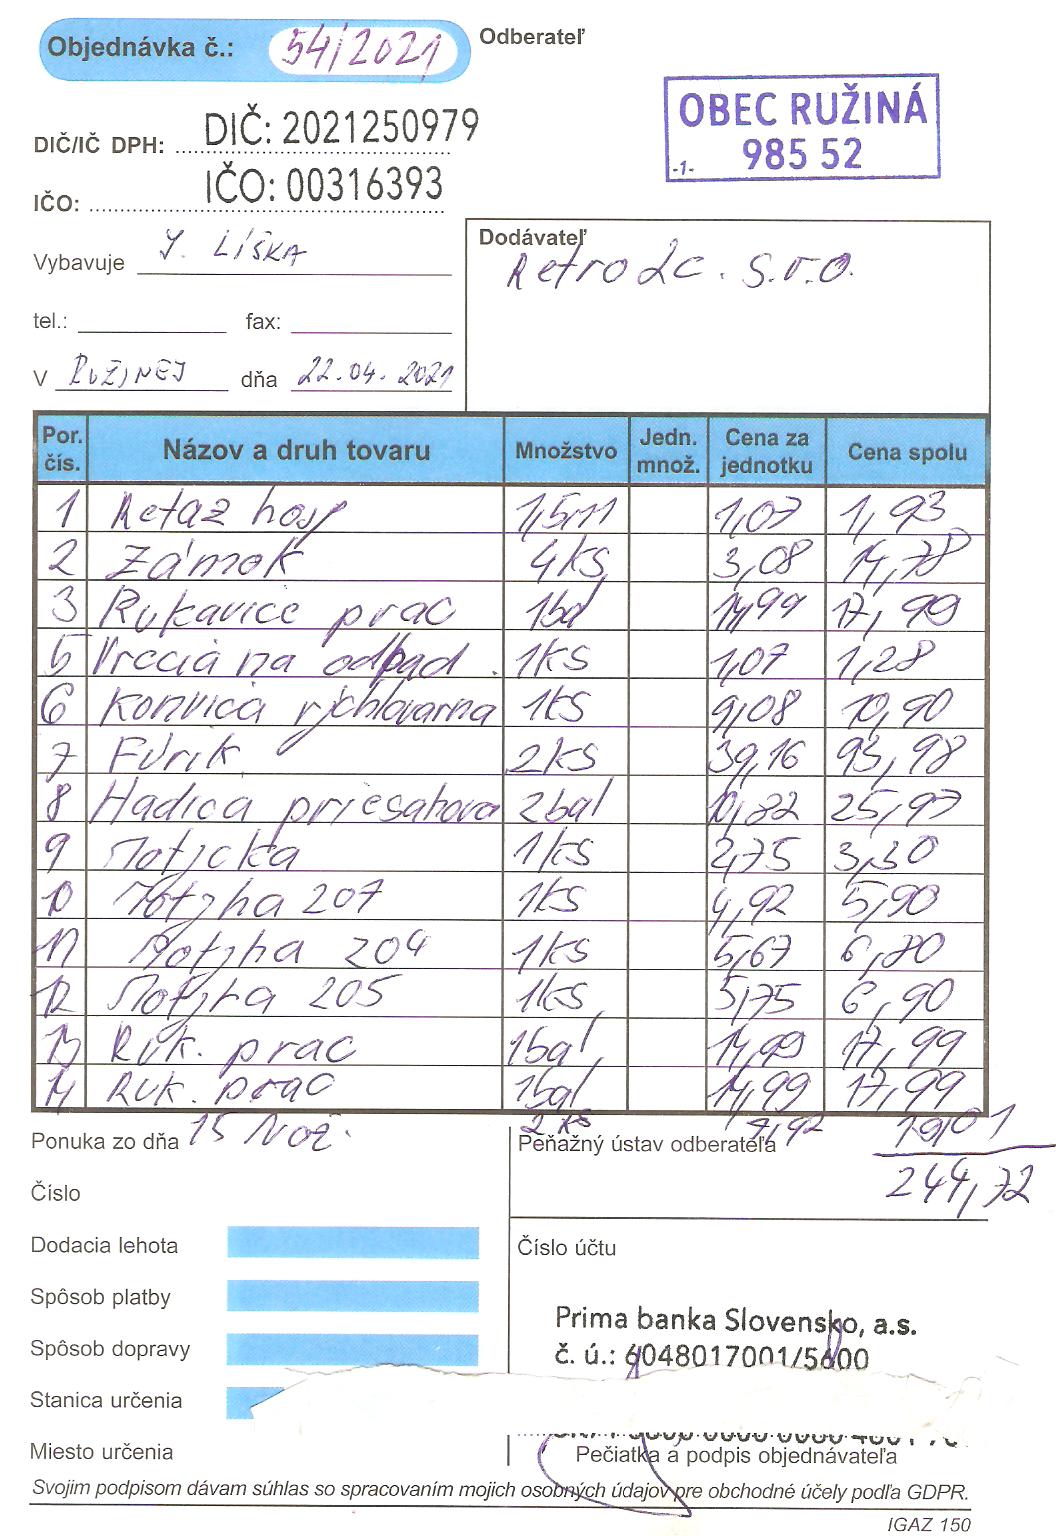 Objednávka č.: 54/2021 Odberateľ
OBEC RUŽINÁ
985 52
-1-
DIČ/IČ DPH: DIČ: 2021250979
IČO: IČO: 00316393
Vybavuje J. LÍŠKA
Dodávateľ
Retro 2c. s.r.o.
tel.: fax:
V RUŽINEJ dňa 22.04.2021
Por. čís. Názov a druh tovaru Množstvo Jedn. množ. Cena za jednotku Cena spolu
1 Retaz hosp 1,5m 1,07 1,93
2 Zámok 4ks 3,08 14,78
3 Rukavice prac 1bal 14,99 17,99
5 Vrecia na odpad. 1ks 1,07 1,28
6 Konvica rýchlovarna 1ks 9,08 10,90
7 Fúrik 2ks 39,16 93,98
8 Hadica priesahova 2bal 10,82 25,97
9 Motycka 1ks 2,75 3,30
10 Motyka 207 1ks 4,92 5,90
11 Motyka 204 1ks 5,67 6,80
12 Motyka 205 1ks 5,75 6,90
13 Ruk. prac 1bal 14,99 17,99
14 Ruk. prac 1bal 14,99 17,99
15 Nož. 2ks 7,92 19,01
Ponuka zo dňa Peňažný ústav odberateľa
244,72
Číslo
Dodacia lehota Číslo účtu
Spôsob platby
Prima banka Slovensko, a.s.
Spôsob dopravy č. ú.: 6048017001/5600
Stanica určenia
Miesto určenia Pečiatka a podpis objednávateľa
Svojim podpisom dávam súhlas so spracovaním mojich osobných údajov pre obchodné účely podľa GDPR.
IGAZ 150